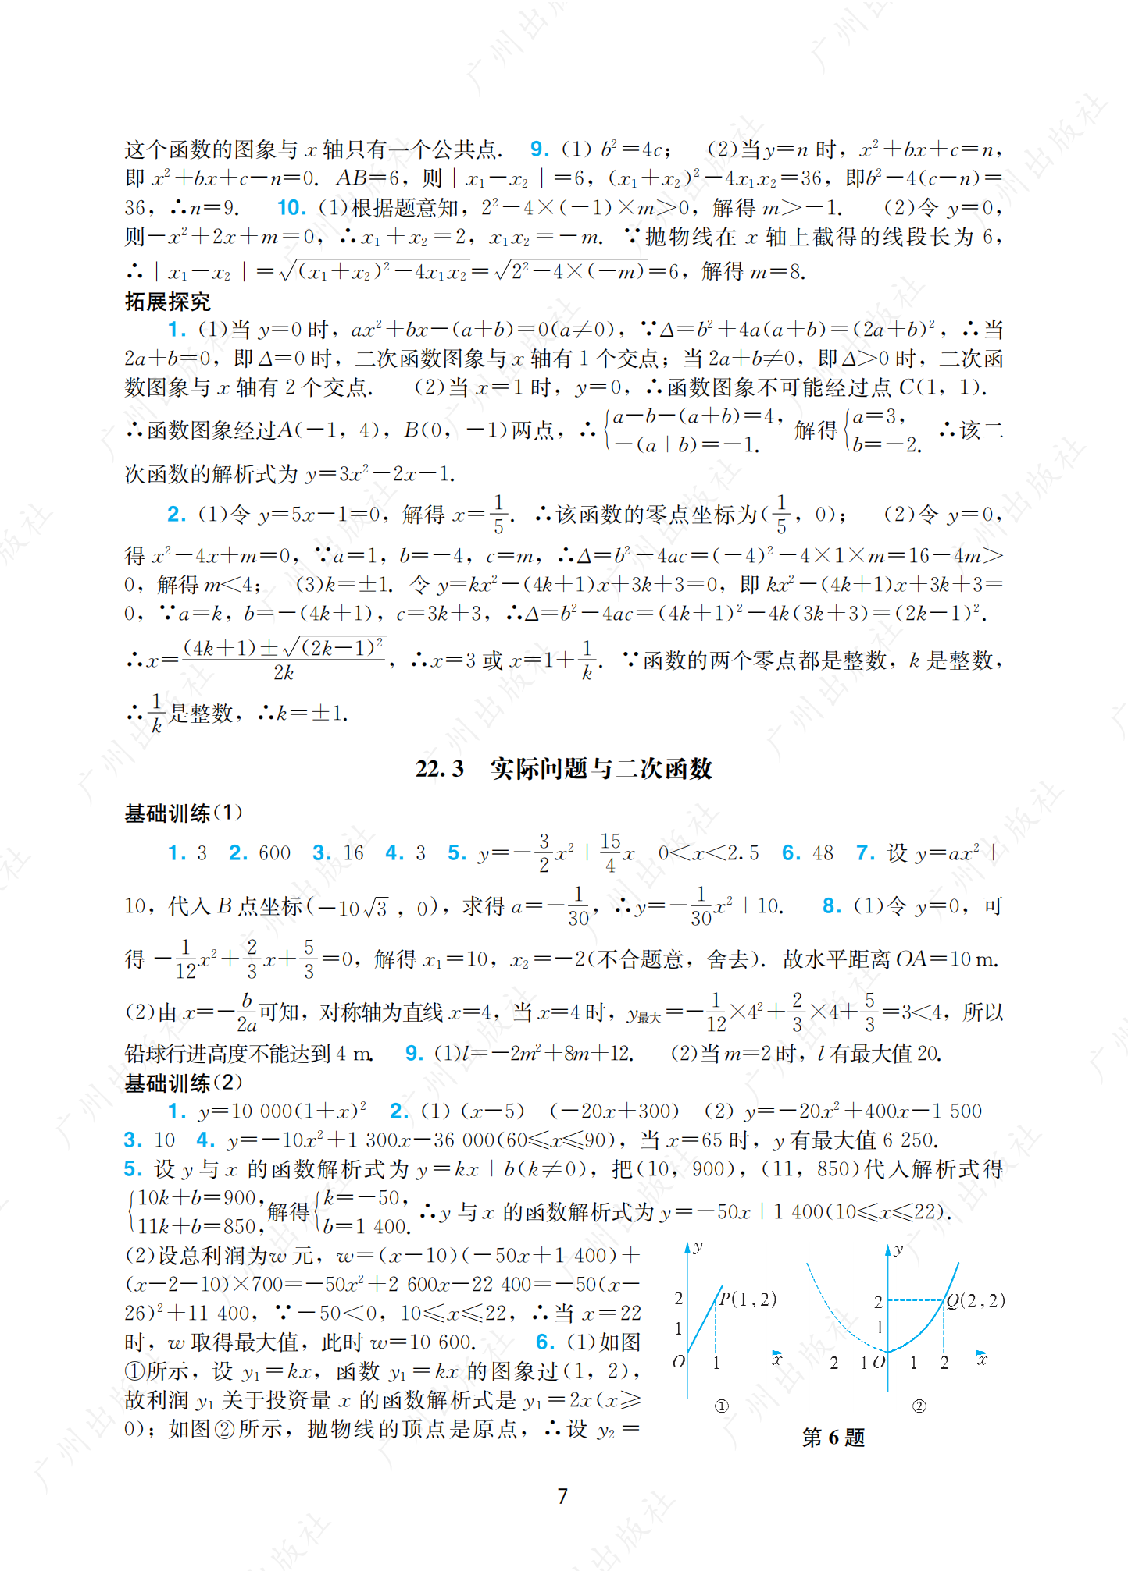 这个函数的图象与 x 轴只有一个公共点. 9. (1) b²=4c; (2)当y=n 时, x²+bx+c=n,
即 x²+bx+c-n=0. AB=6, 则|x₁-x₂|=6, (x₁+x₂)²-4x₁x₂=36, 即b²-4(c-n)=
36, ∴n=9. 10. (1)根据题意知, 2²-4×(-1)×m>0, 解得 m>-1. (2)令 y=0,
则-x²+2x+m=0, ∴x₁+x₂=2, x₁x₂=-m. ∵抛物线在 x 轴上截得的线段长为 6,
∴|x₁-x₂|=√((x₁+x₂)²-4x₁x₂)=√(2²-4×(-m))=6, 解得 m=8.
拓展探究
1. (1)当 y=0 时, ax²+bx-(a+b)=0(a≠0), ∵Δ=b²+4a(a+b)=(2a+b)², ∴当
2a+b=0, 即 Δ=0 时, 二次函数图象与 x 轴有 1 个交点; 当 2a+b≠0, 即Δ>0 时, 二次函
数图象与 x 轴有 2 个交点. (2)当 x=1 时, y=0, ∴函数图象不可能经过点 C(1, 1).
∴函数图象经过A(-1, 4), B(0, -1)两点, ∴{a-b-(a+b)=4, -(a+b)=-1. 解得{a=3, b=-2. ∴该二
次函数的解析式为 y=3x²-2x-1.
2. (1)令 y=5x-1=0, 解得 x=1/5. ∴该函数的零点坐标为(1/5, 0); (2)令 y=0,
得 x²-4x+m=0, ∵a=1, b=-4, c=m, ∴Δ=b²-4ac=(-4)²-4×1×m=16-4m>
0, 解得 m<4; (3)k=±1. 令 y=kx²-(4k+1)x+3k+3=0, 即 kx²-(4k+1)x+3k+3=
0, ∵a=k, b=-(4k+1), c=3k+3, ∴Δ=b²-4ac=(4k+1)²-4k(3k+3)=(2k-1)².
∴x=((4k+1)±√((2k-1)²))/2k, ∴x=3 或 x=1+1/k. ∵函数的两个零点都是整数, k 是整数,
∴1/k是整数, ∴k=±1.
22.3 实际问题与二次函数
基础训练(1)
1. 3 2. 600 3. 16 4. 3 5. y=-3/2x²+15/4x 0<x<2.5 6. 48 7. 设 y=ax²+
10, 代入 B 点坐标(-10√3, 0), 求得 a=-1/30, ∴y=-1/30x²+10. 8. (1)令 y=0, 可
得 -1/12x²+2/3x+5/3=0, 解得 x₁=10, x₂=-2(不合题意, 舍去). 故水平距离 OA=10 m.
(2)由 x=-b/2a可知, 对称轴为直线 x=4, 当 x=4 时, y最大=-1/12×4²+2/3×4+5/3=3<4, 所以
铅球行进高度不能达到 4 m. 9. (1)l=-2m²+8m+12. (2)当 m=2 时, l 有最大值 20.
基础训练(2)
1. y=10 000(1+x)² 2. (1) (x-5) (-20x+300) (2) y=-20x²+400x-1 500
3. 10 4. y=-10x²+1 300x-36 000(60≤x≤90), 当 x=65 时, y 有最大值 6 250.
5. 设 y 与 x 的函数解析式为 y=kx+b(k≠0), 把(10, 900), (11, 850)代入解析式得
{10k+b=900, 11k+b=850, 解得{k=-50, b=1 400. ∴y 与 x 的函数解析式为 y=-50x+1 400(10≤x≤22).
(2)设总利润为w 元, w=(x-10)(-50x+1 400)+
(x-2-10)×700=-50x²+2 600x-22 400=-50(x-
26)²+11 400, ∵-50<0, 10≤x≤22, ∴当 x=22
时, w 取得最大值, 此时 w=10 600. 6. (1)如图
①所示, 设 y₁=kx, 函数 y₁=kx 的图象过(1, 2),
故利润 y₁ 关于投资量 x 的函数解析式是 y₁=2x(x≥
0); 如图②所示, 抛物线的顶点是原点, ∴设 y₂=
y
2
P(1, 2)
1
O 1 x
①
y
2
Q(2, 2)
1
2 1 O 1 2 x
②
第 6 题
7
广州出版社